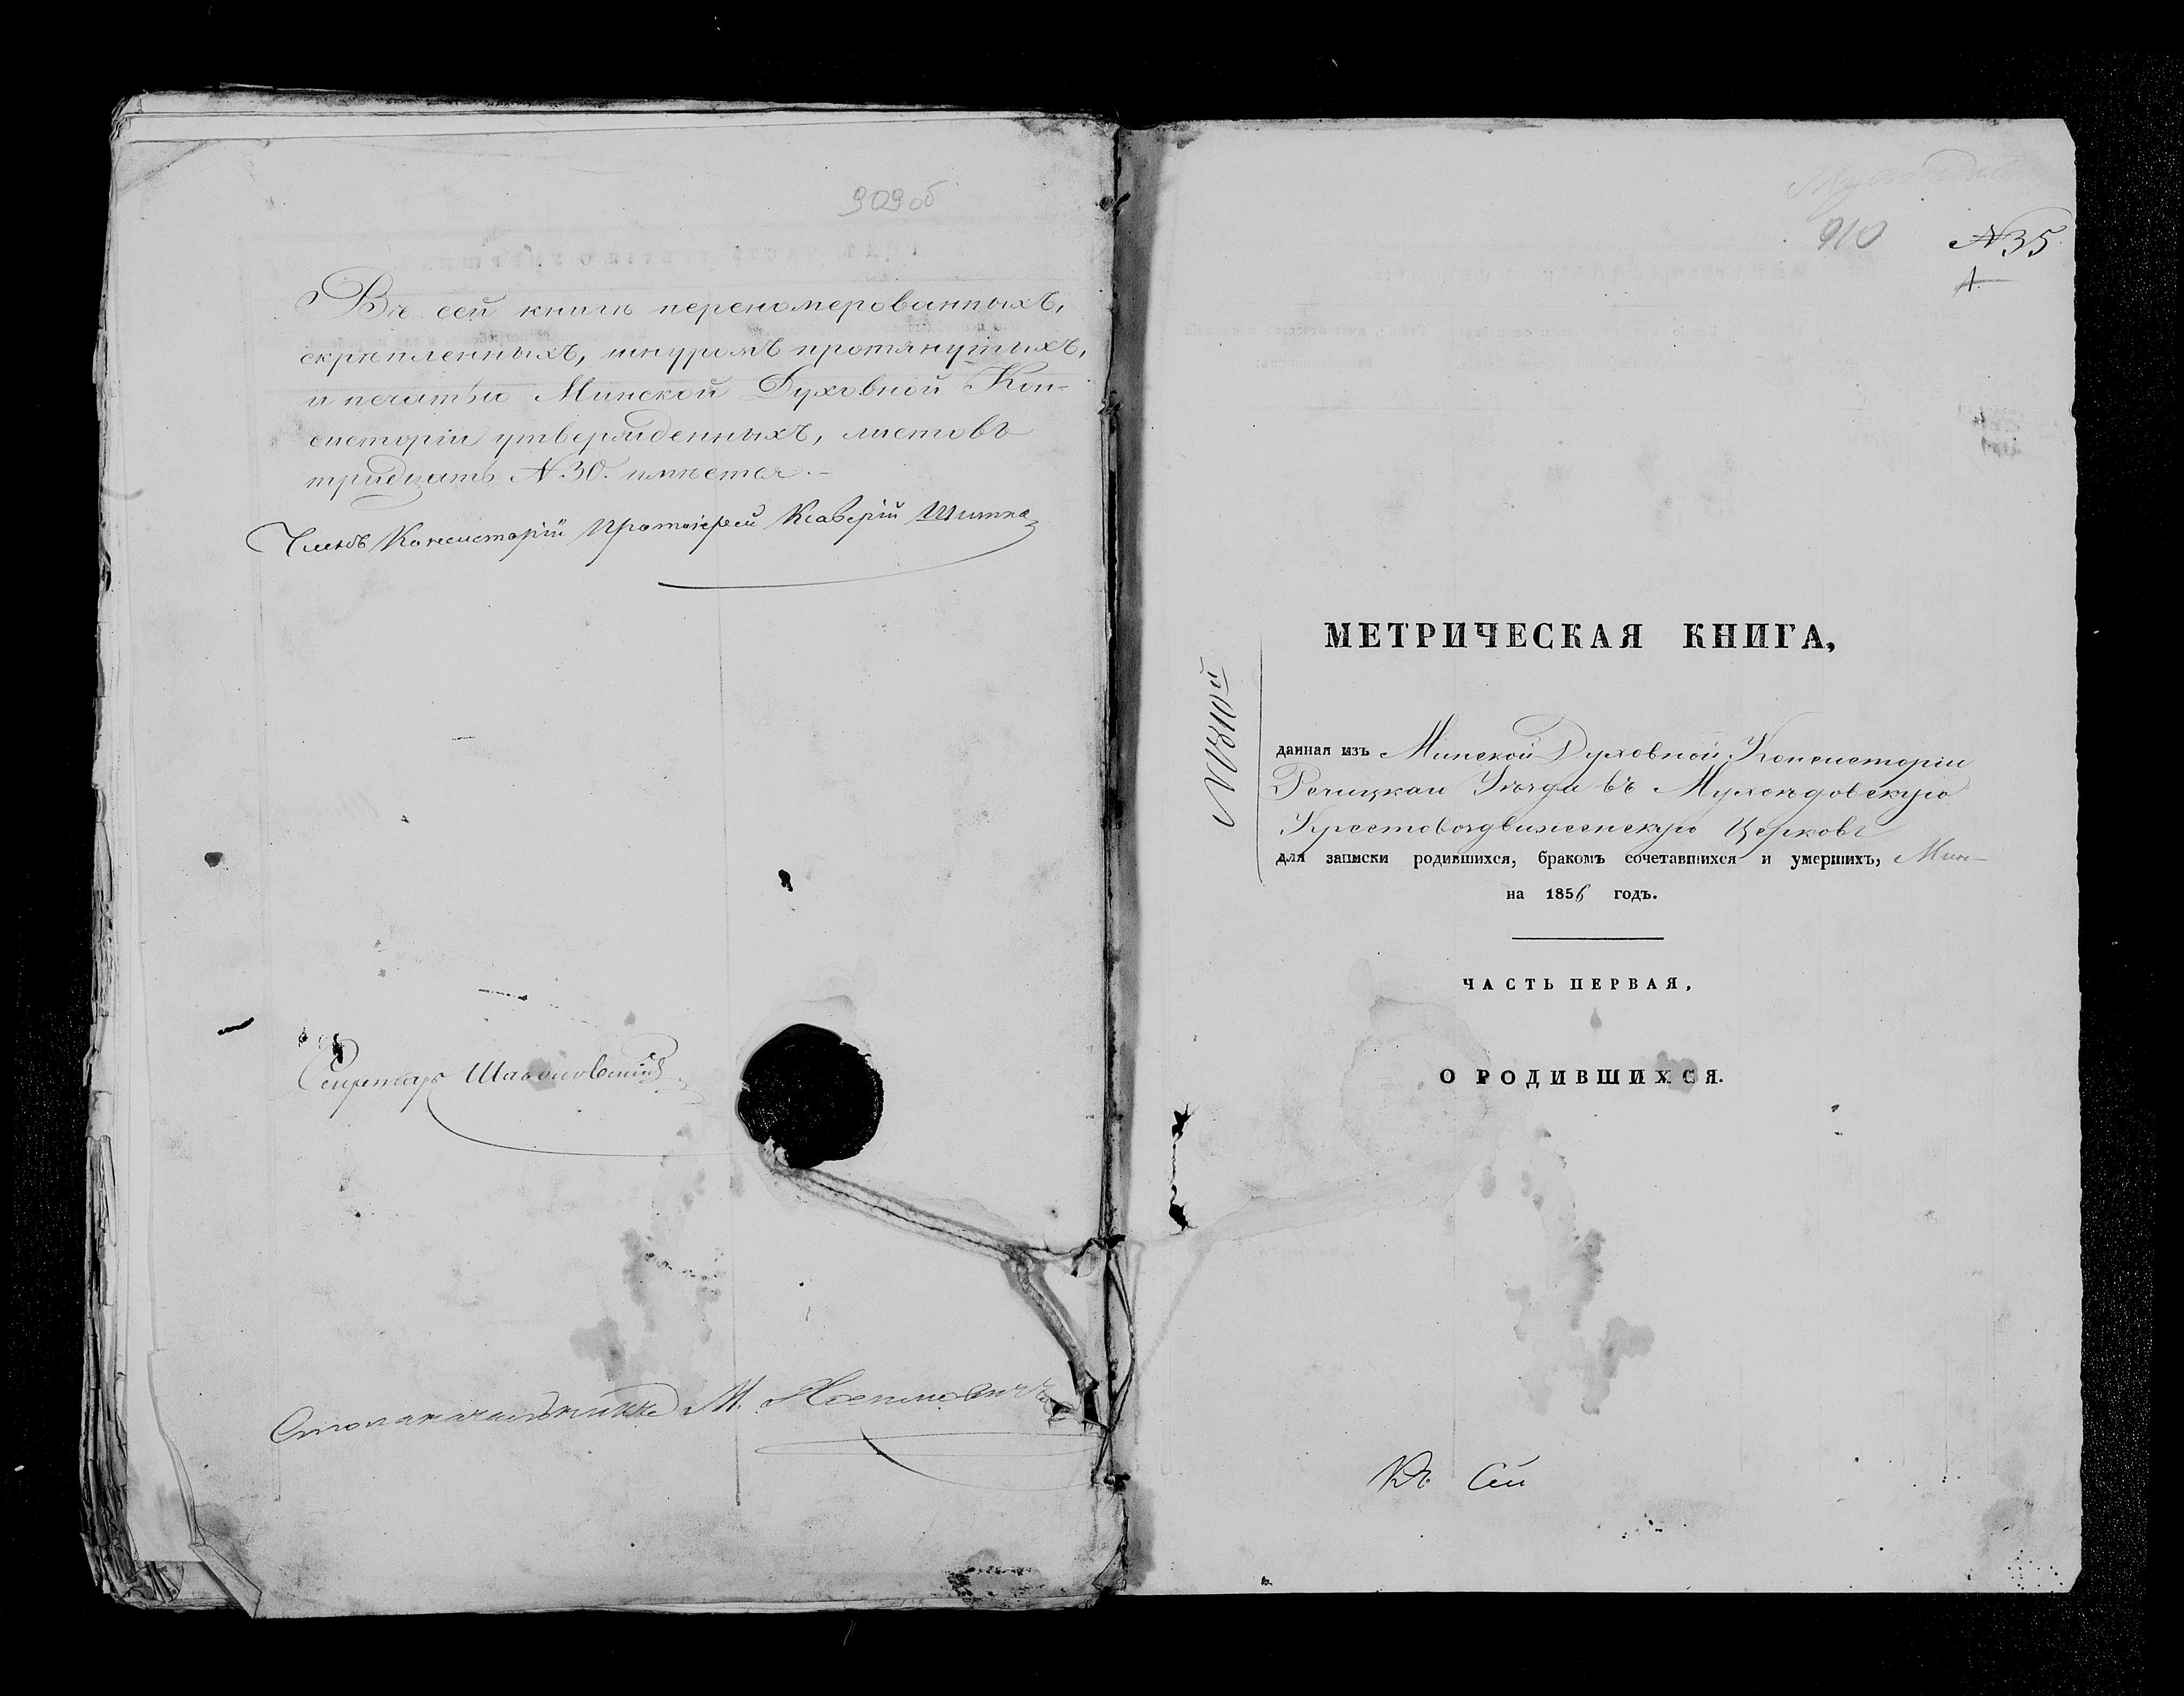 909 об
Въ сей книгѣ переномерованныхъ,
скрѣпленныхъ, шнуромъ протянутыхъ,
и печатью Минской Духовной Кон-
систоріи утвержденныхъ, листовъ
тридцать N 30. имѣется.–
Членъ Консисторіи Протоіерей Ксаверій
Секретарь
Столоначальникъ М.
910
N 35
1
МЕТРИЧЕСКАЯ КНИГА,
данная изъ Минской Духовной Консисторіи
Речицкаго Уѣзда въ Мухоѣдовскую
Крестовоздвиженскую Церковь
для записки родившихся, бракомъ сочетавшихся и умершихъ,
на 1856 годъ.
ЧАСТЬ ПЕРВАЯ,
О РОДИВШИХСЯ.
Къ Сей